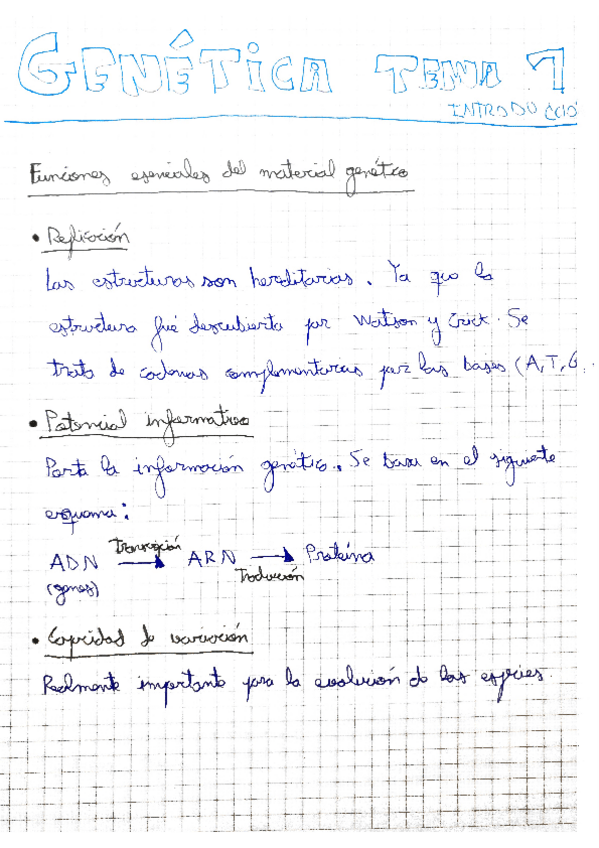 GENÉTICA TEMA 1
INTRODUCCIO
Funciones esenciales del material genético
• Replicación
Las estructuras son hereditarias. Ya que la
estructura fué descubierta por Watson y Crick. Se
trata de cadenas complementarias por las bases (A,T,G,
• Potencial informativo
Porta la información genética. Se basa en el siguiente
esquema:
ADN Transcripción ARN Traducción Proteína
(genes)
• Capacidad de variación
Realmente importante para la evolución de las especies.